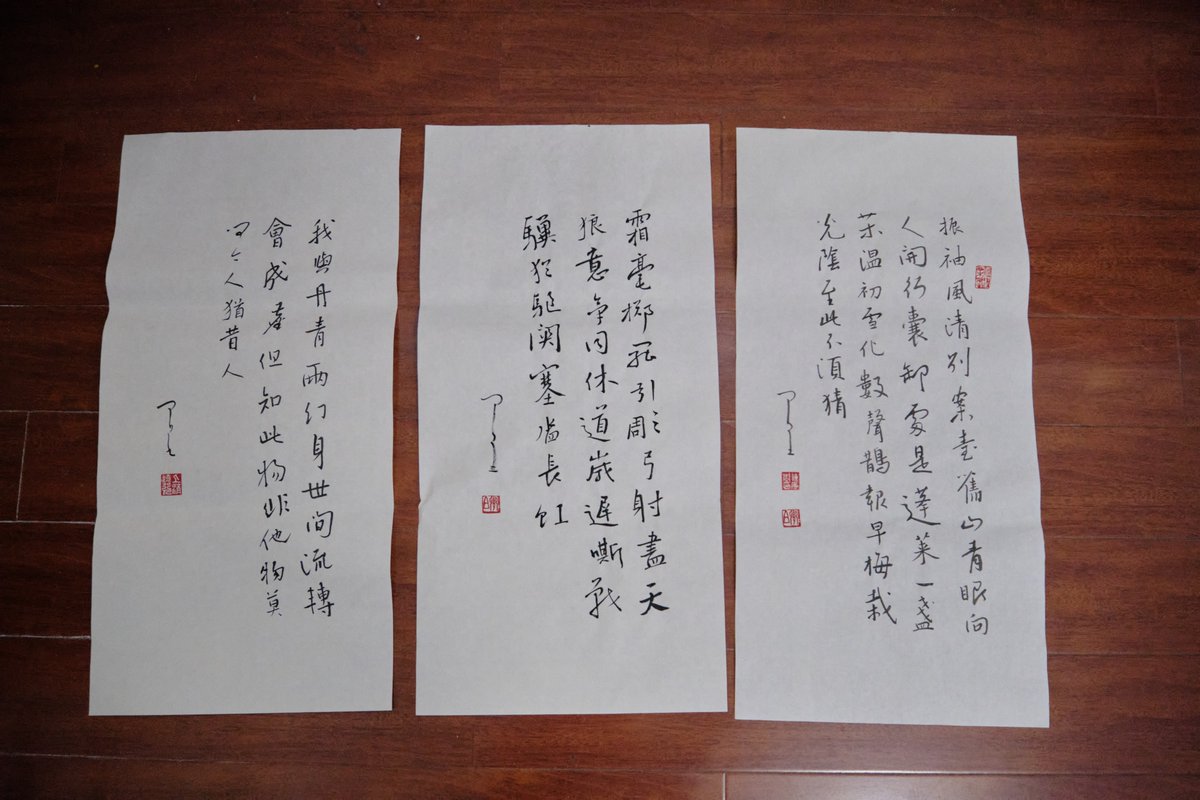 振袖風清別案臺舊山青眼向
人開行囊卸處是蓬萊一盞
茶温初雪化數聲鵲報早梅栽
光陰至此不須猜
霜毫擲罷引彫弓射盡天
狼意氣同休道歲遲嘶戰
驥猶驅関塞長虹
我與丹青兩幻身世间流轉
會成塵但知此物非他物莫
问今人猶昔人